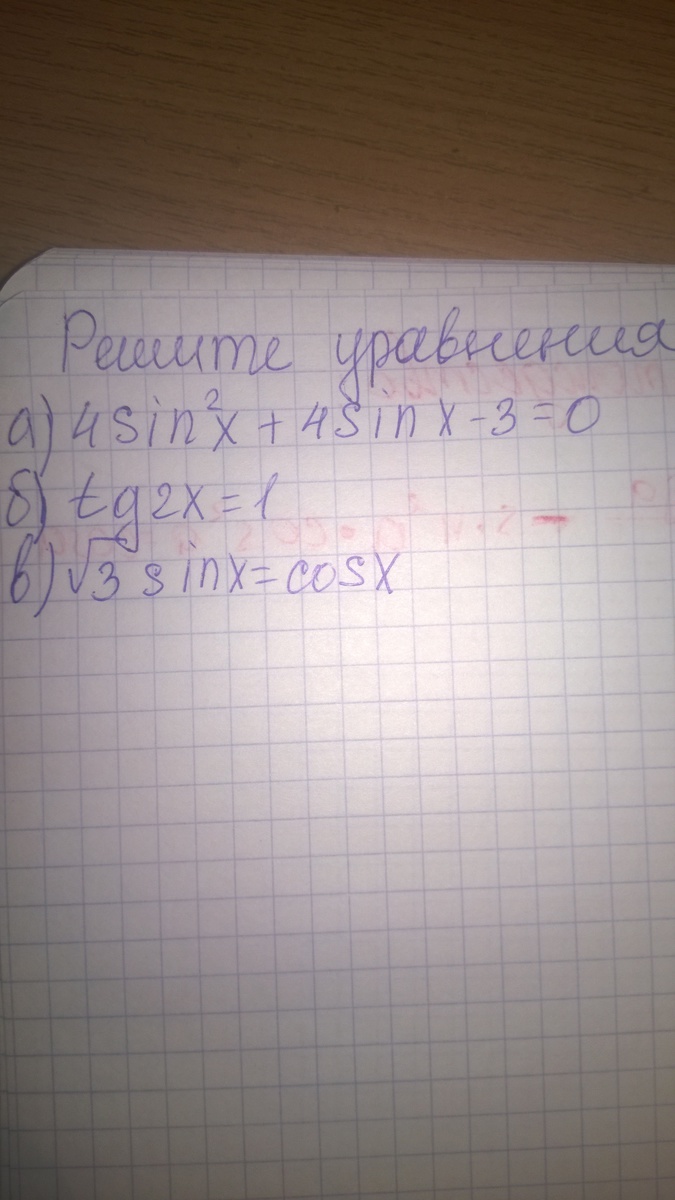 Решите уравнения
а) 4sin²x + 4sin x - 3 = 0
б) tg2x = 1
в) √3 sinx = cosx